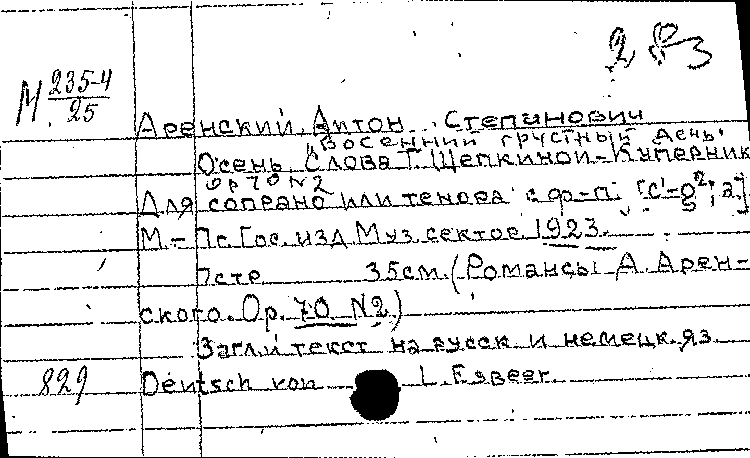 М 235-4
25
Аренский, Антон Степанович
"В осенний грустный день"
Осень. Слова Т. Щепкиной-Куперник
ор 70 N2
Для сопрано или тенора с ф-п. [c¹-g²; a]
М.-Пс. Гос. изд. Муз. сектор. 1923.
7стр 35см. (Романсы А. Арен-
ского. Ор. 70 N2.)
Загл. и текст на русск и немецк. яз.
829 Deutsch von L. Esbeer.